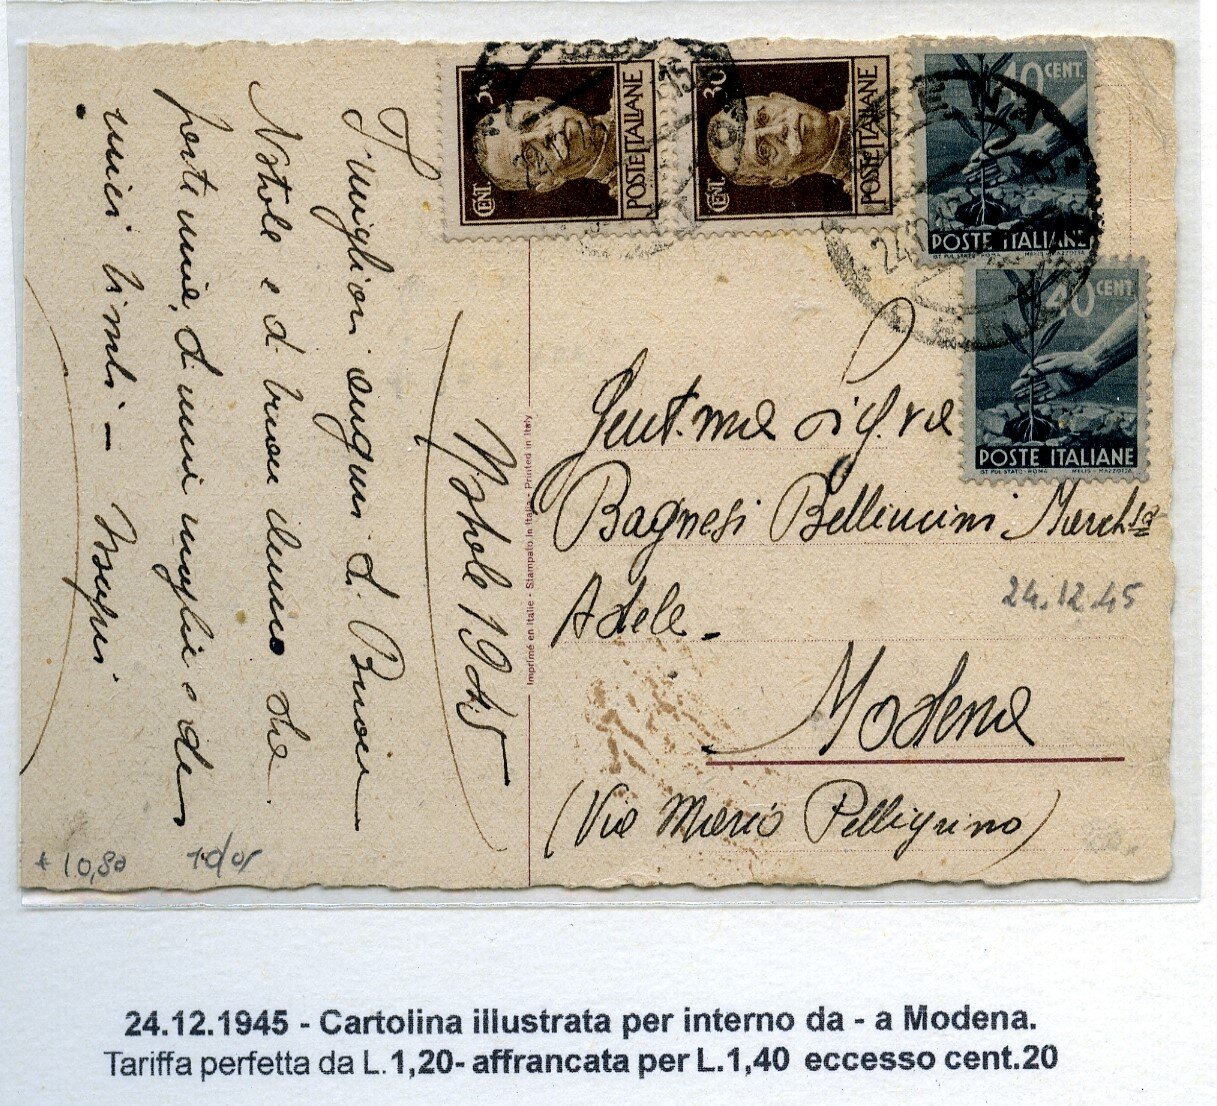 30
CENT.
POSTE ITALIANE
30
CENT.
POSTE ITALIANE
40 CENT.
POSTE ITALIANE
IST. POL. STATO - ROMA MELIS - MAZZOTTA
40 CENT.
POSTE ITALIANE
IST. POL. STATO - ROMA MELIS - MAZZOTTA
24.12
Natale 1945
I migliori auguri di Buon
Natale e di buon anno da
parte mia, di mia moglie e dei
miei bimbi –
Imprimé en Italie - Stampato in Italia - Printed in Italy
Gent.ma Sig.ra
Bagnesi Bellincini March.sa
Adele -
24.12.45
Modena
(Via Mario Pellegrino)
10,80
24.12.1945 - Cartolina illustrata per interno da - a Modena.
Tariffa perfetta da L.1,20- affrancata per L.1,40 eccesso cent.20